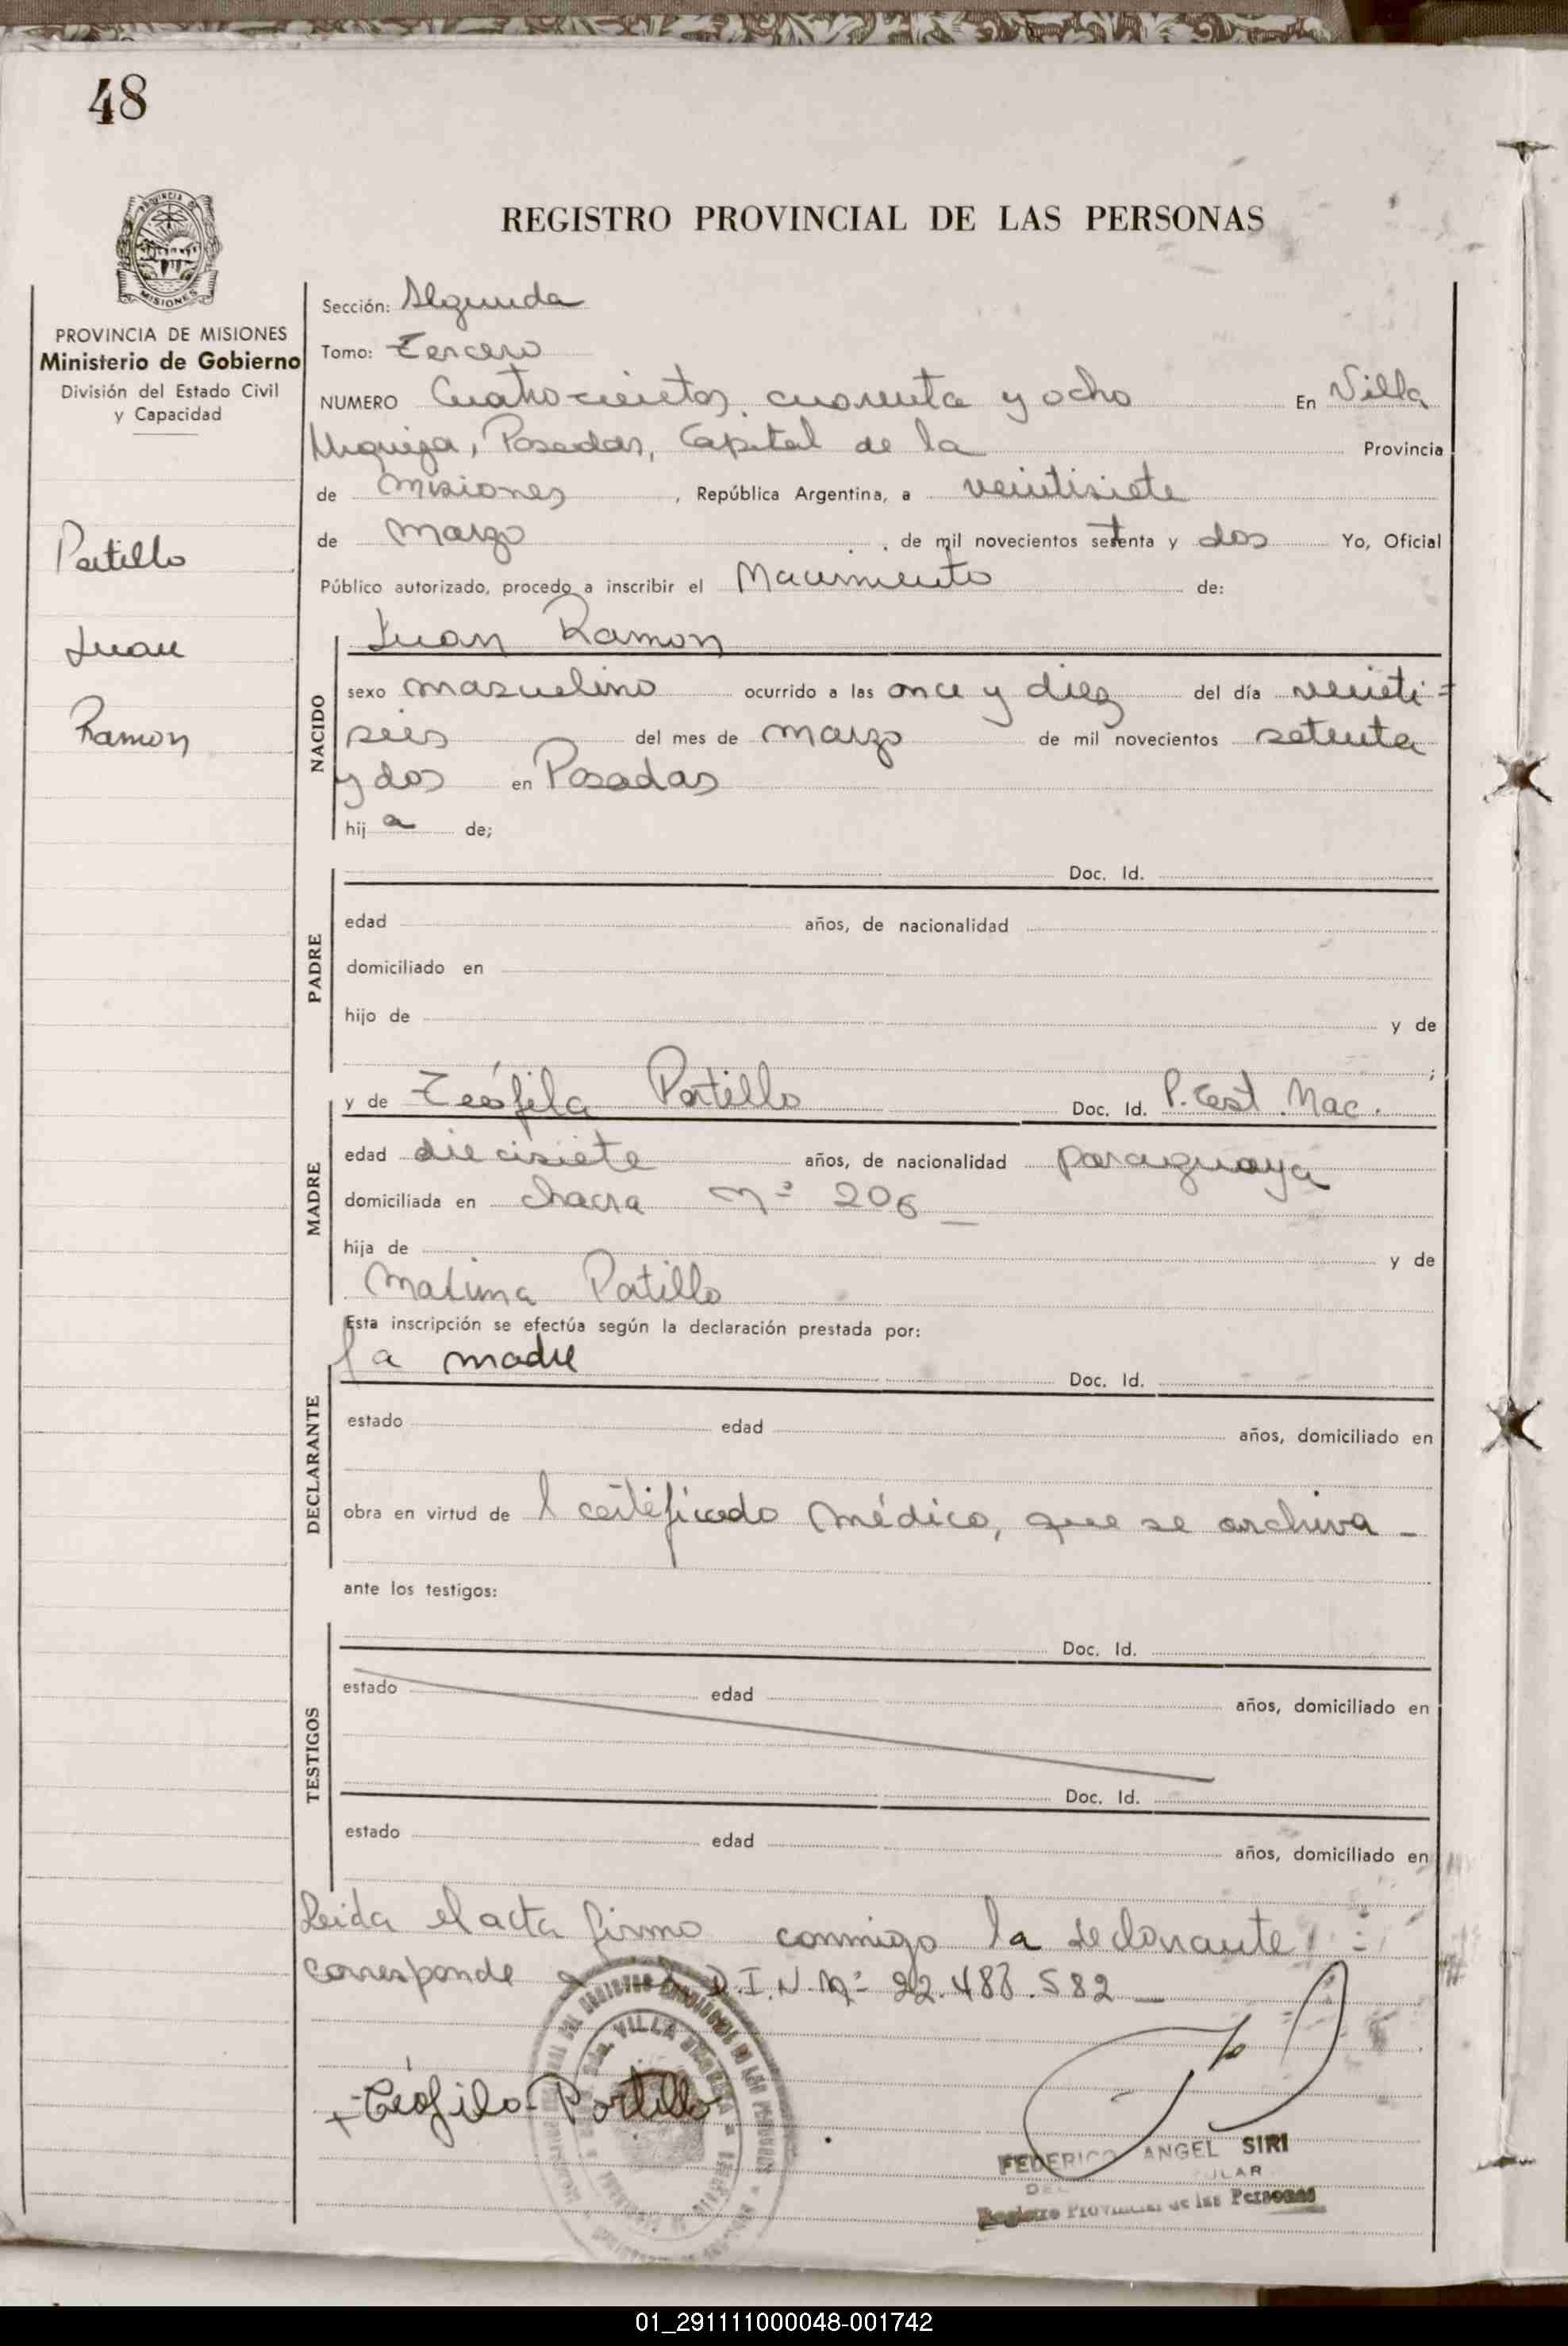 48
REGISTRO PROVINCIAL DE LAS PERSONAS
PROVINCIA DE MISIONES
Ministerio de Gobierno
División del Estado Civil
y Capacidad
Portillo
Juan
Ramon
Sección: Segunda
Tomo: Tercero
NUMERO Cuatrocientos cuarenta y ocho En Villa
Urquiza, Posadas, Capital de la Provincia
de Misiones, República Argentina, a veintisiete
de Marzo, de mil novecientos setenta y dos Yo, Oficial
Público autorizado, procedo a inscribir el Nacimiento de:
NACIDO
Juan Ramon
sexo masculino ocurrido a las once y diez del día veinti=
seis del mes de marzo de mil novecientos setenta
y dos en Posadas
hija de;
PADRE
Doc. Id.
edad años, de nacionalidad
domiciliado en
hijo de y de
;
MADRE
y de Teófila Portillo Doc. Id. P. Cert. Nac.
edad diecisiete años, de nacionalidad paraguaya
domiciliada en chacra Nº 206_
hija de y de
Portillo
Esta inscripción se efectúa según la declaración prestada por:
DECLARANTE
la madre Doc. Id.
estado edad años, domiciliado en
obra en virtud de l certificado médico, que se archiva -
ante los testigos:
TESTIGOS
Doc. Id.
estado edad años, domiciliado en
Doc. Id.
estado edad años, domiciliado en
Leida el acta firmo conmigo la declarante
corresponde D.I.N.Nº 22.488.582_
VILLA
+ Teófila Portillo
FEDERICO ANGEL SIRI
Registro Provincial de las Personas
01_291111000048-001742